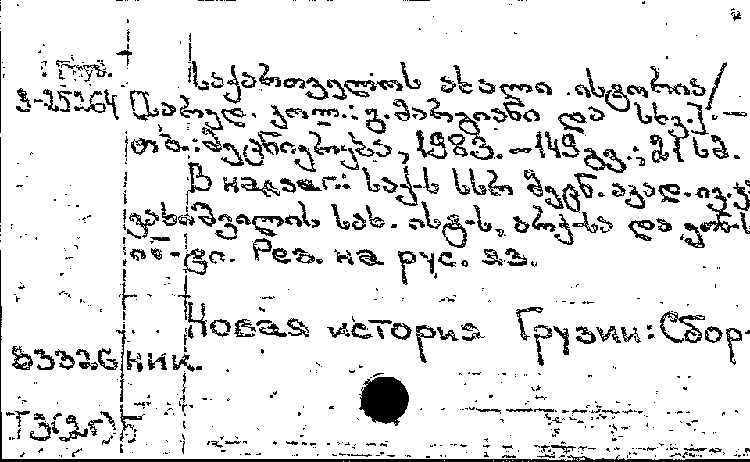 Груз.
საქართველოს ახალი ისტორია/
3-25264 [სარედ. კოლ.: გ. მარგიანი და სხვ.]. —
თბ.: მეცნიერება, 1983. — 149 გვ.; 21 სმ.
В надзаг.: საქ-ს სსრ მეცნ. აკად. ივ. ჯა
ვახიშვილის სახ. ისტ-ს, არქ-სა და ეთნ-ს
ინ-ტი. Рез. на рус. яз.
Новая история Грузии: Сбор-
83326 ник.
Т3(2Г)5